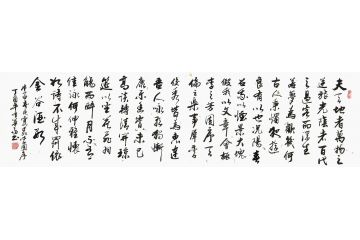 夫天地者萬物之
逆旅光陰者百代
之過客而浮生
若夢為歡幾何
古人秉燭夜遊
良有以也況陽春
召我以煙景大塊
假我以文章會桃
李之芳園序天
倫之樂事羣季
俊秀皆為惠連
吾人詠歌獨慚
康樂幽賞未已
高談轉清開瓊
筵以坐花飛羽
觴而醉月不有
佳詠何伸雅懷
如詩不成罰依
金谷酒數